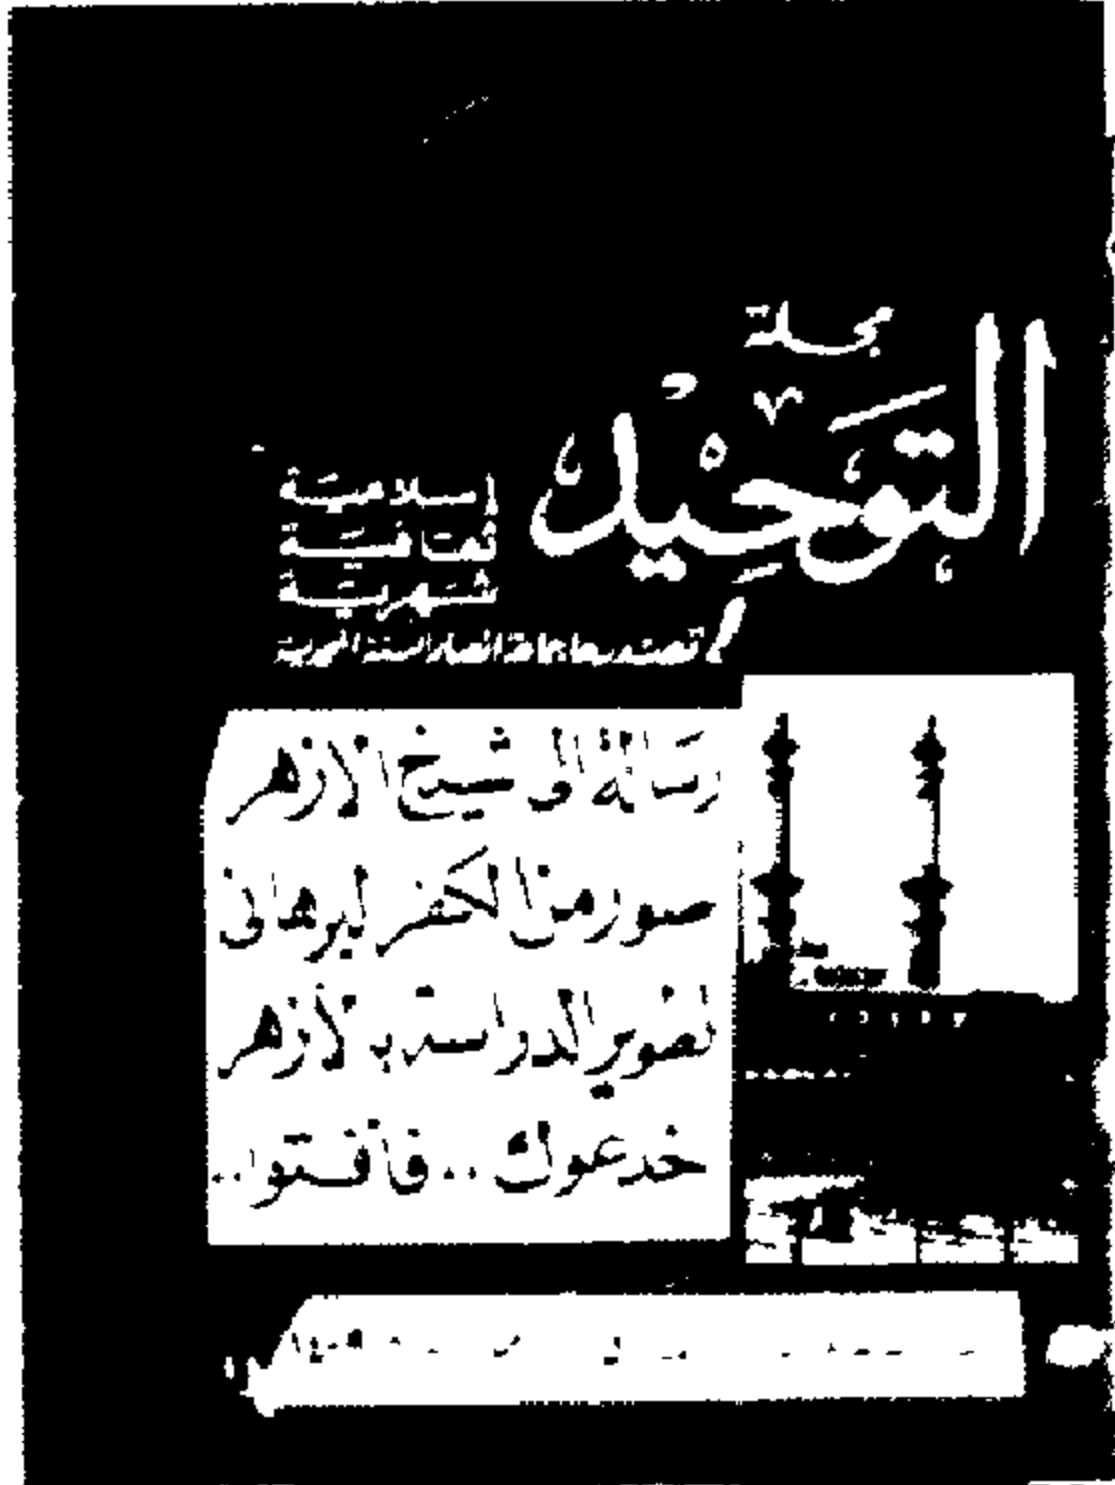 مجلة
التوحيد
إسلامية
ثقافية
شهرية
تصدرها جماعة أنصار السنة المحمدية
رسالة إلى شيخ الأزهر
صور من الكفر لبرهاني
تطوير الدراسة بالأزهر
خدعوك .. فأفتوا ..